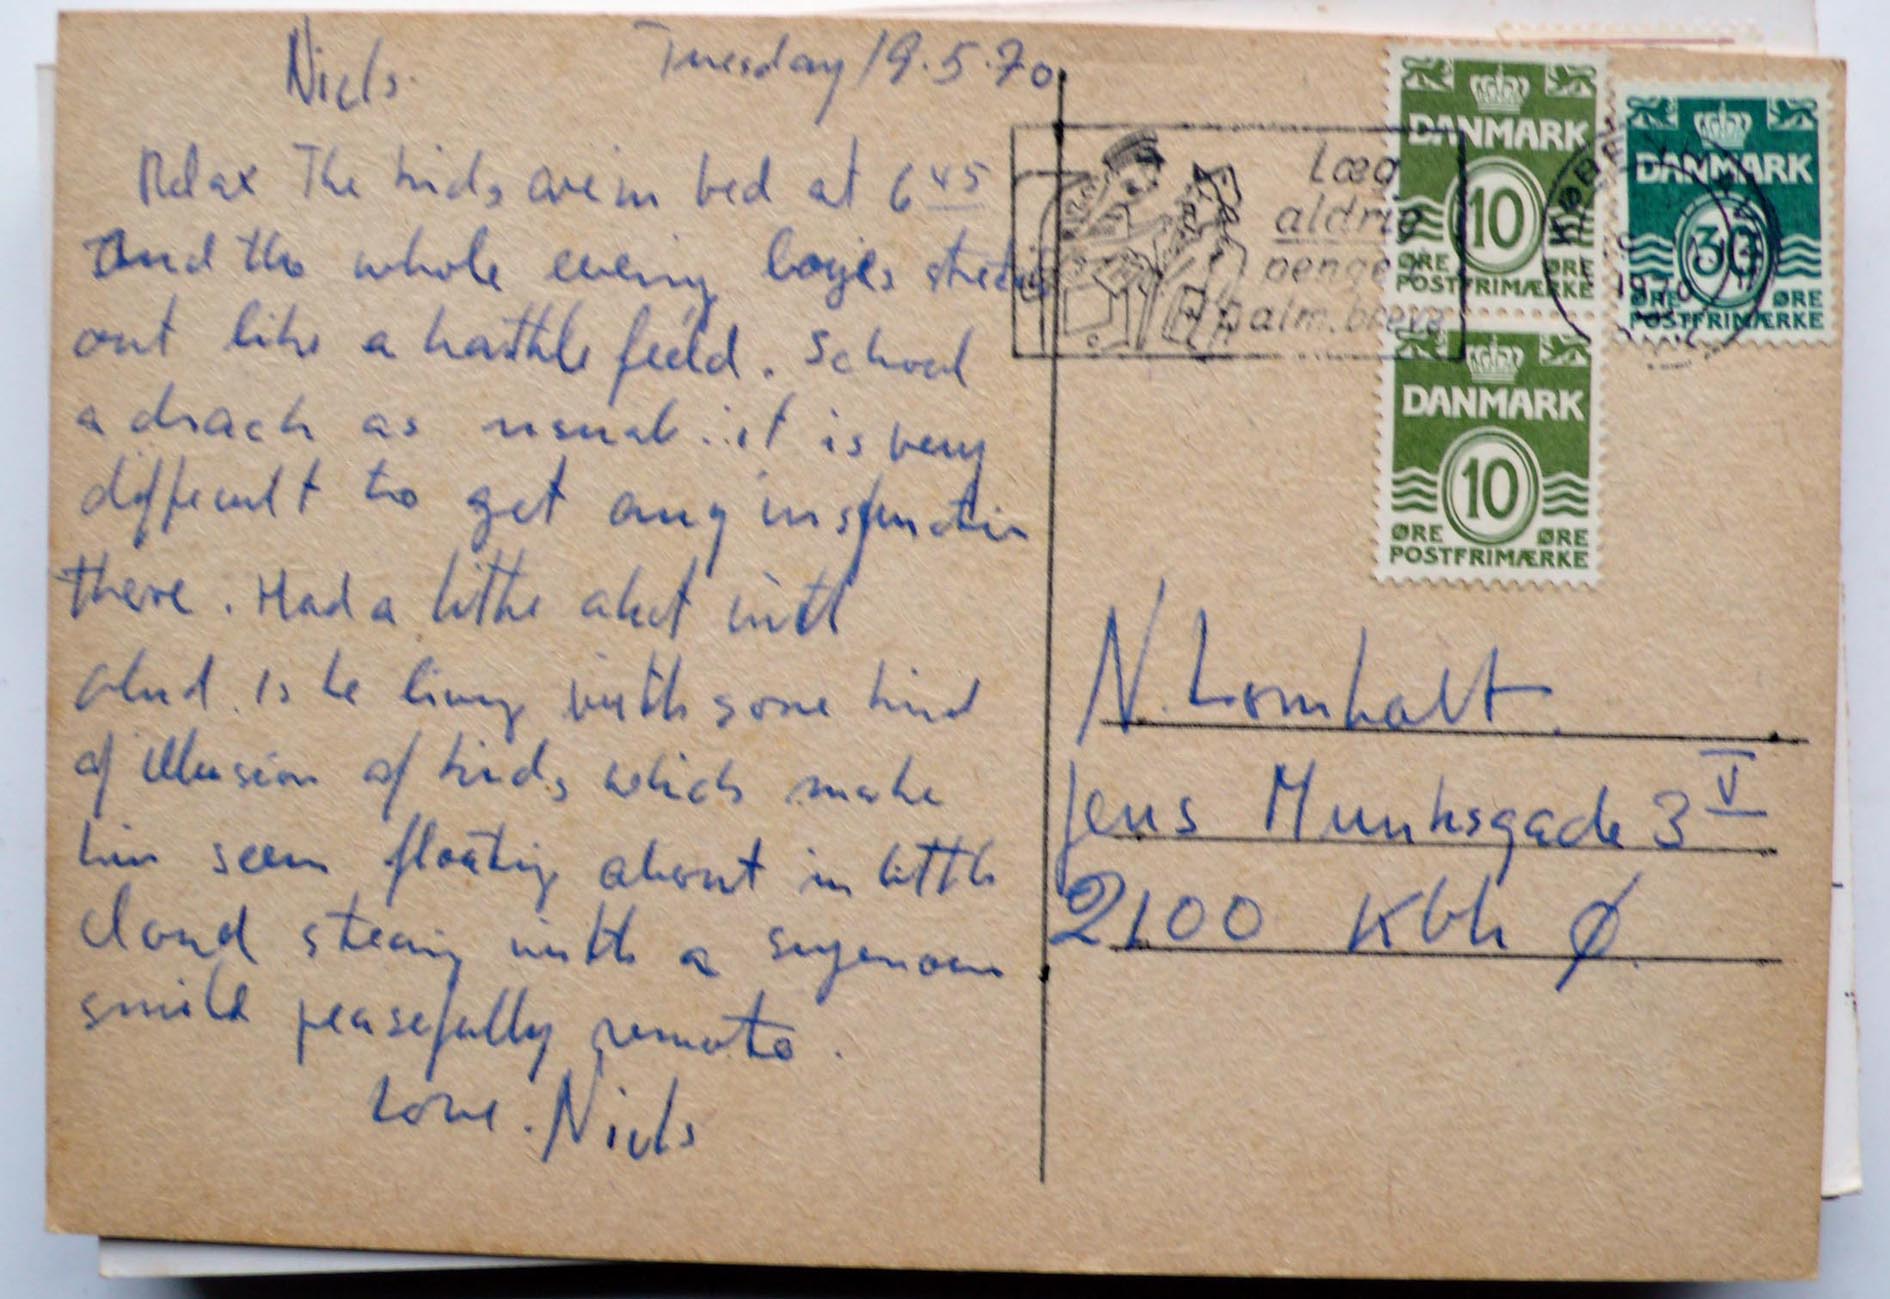 Niels.
Tuesday 19.5.70
Relax The kids are in bed at 6 45
And the whole evening
out like a battle field. School
a drach as usual.. it is very
difficult to get any
there. Had a little with
Is he living with some kind
of illusion of kinds which make
him seem floating about in little
cloud with a
smile peasefully remote.
Love. Niels
Læg
aldrig
penge i
alm. breve
KØBENHAVN
1970
DANMARK
10
ØRE ØRE
POSTFRIMÆRKE
DANMARK
30
ØRE ØRE
POSTFRIMÆRKE
DANMARK
10
ØRE ØRE
POSTFRIMÆRKE
N. Lomholt.
Jens Munksgade 3 V
2100 Kbh Ø.